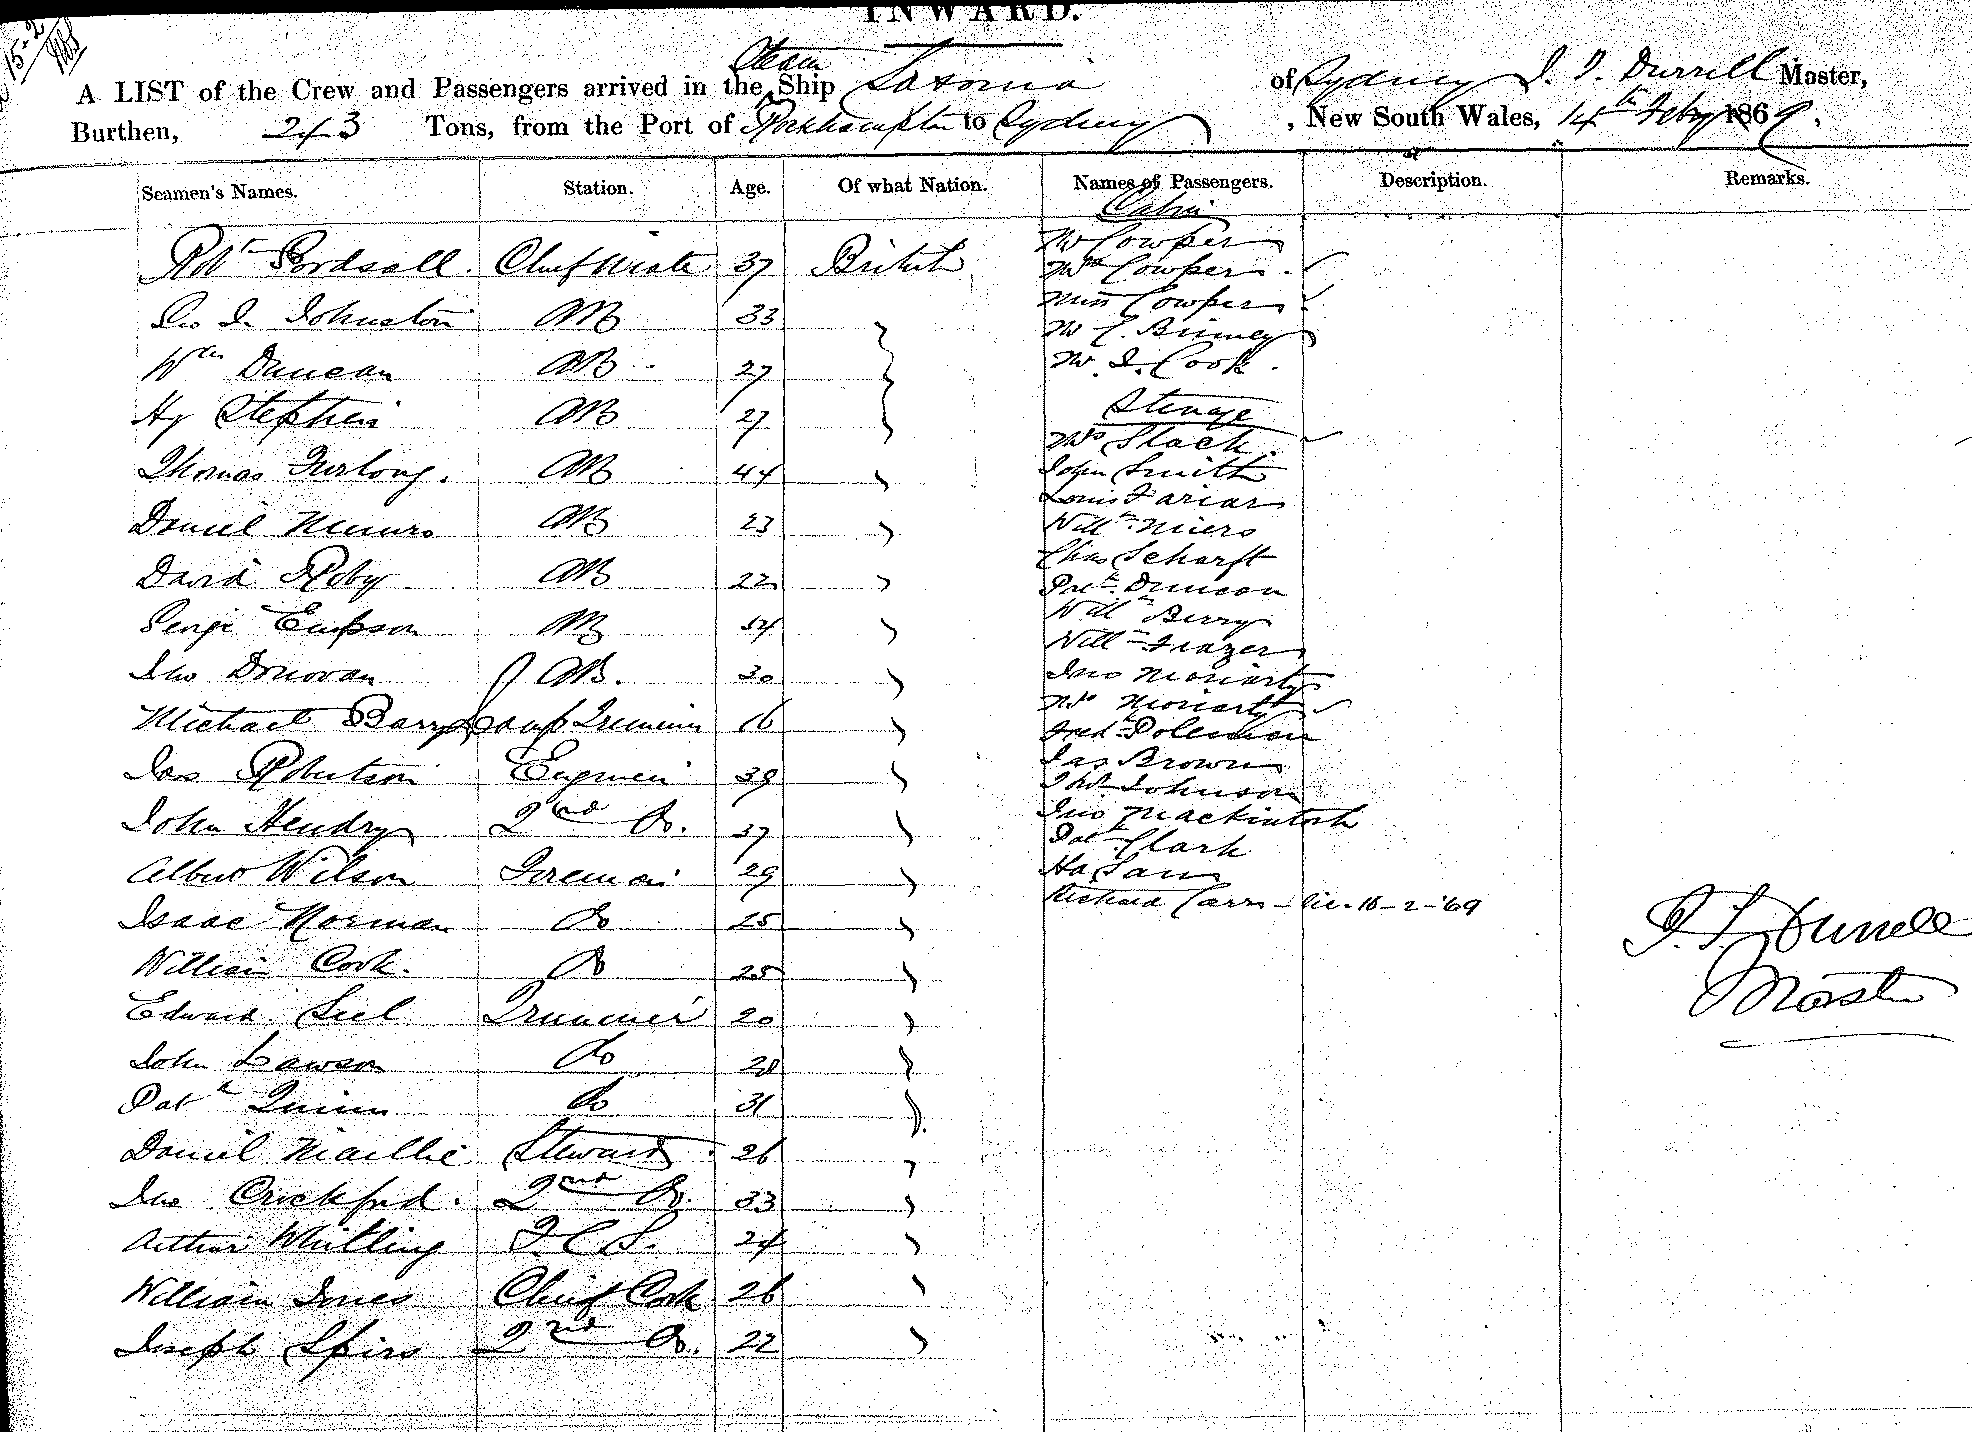 INWARD.
15-2
A LIST of the Crew and Passengers arrived in the Steam Ship Saxonia of Sydney I. T. Durrell Master,
Burthen, 243 Tons, from the Port of Rockhampton to Sydney, New South Wales, 14th Feby 1869,
Seamen's Names. Station. Age. Of what Nation. Names of Passengers. Description. Remarks.
Cabin
Robt Pordsall. Chief Mate 37 British Mr Cowper
Mrs Cowper
Miss Cowper
Geo I. Johnston AB 33
Mr C. Binney
Wm Duncan AB 27 Mr I. Cook
Hy Stephen AB 27 Steerage
Mrs Slack
Thomas Furlong. AB 44 John Smith
Louis Fariar
Daniel Munro AB 23 Willm Miers
Chas Scharft
David Roby AB 22 Patk Duncan
Willm Berry
George Empson AB 54
Willm Frazer
Jno Donovan AB. 30 Jno Moriarty
Mrs Moriarty
Michael Barry Lamp Trimmer 16
Fredk Poleman
Jas Brown
Jas Robertson Engineer 39
Thos Johnson
John Hendry 2nd Do. 37 Jno Mackintosh
Patk Clark
Albert Wilson Fireman 29 Ha Sam
Richard Carr - 16-2-'69
Isaac Norman Do 25
I. T. Durrell
William Cook. Do 25
Master
Edward Seel Trimmer 20
John Lawson Do 28
Patk Quinn Do 31
Daniel Maillie Steward 26
Jno Crickford. 2nd Do. 33
Arthur Whitling F. C. S. 24
William Jones Chief Cook 26
Joseph Spiro 2nd Do. 22